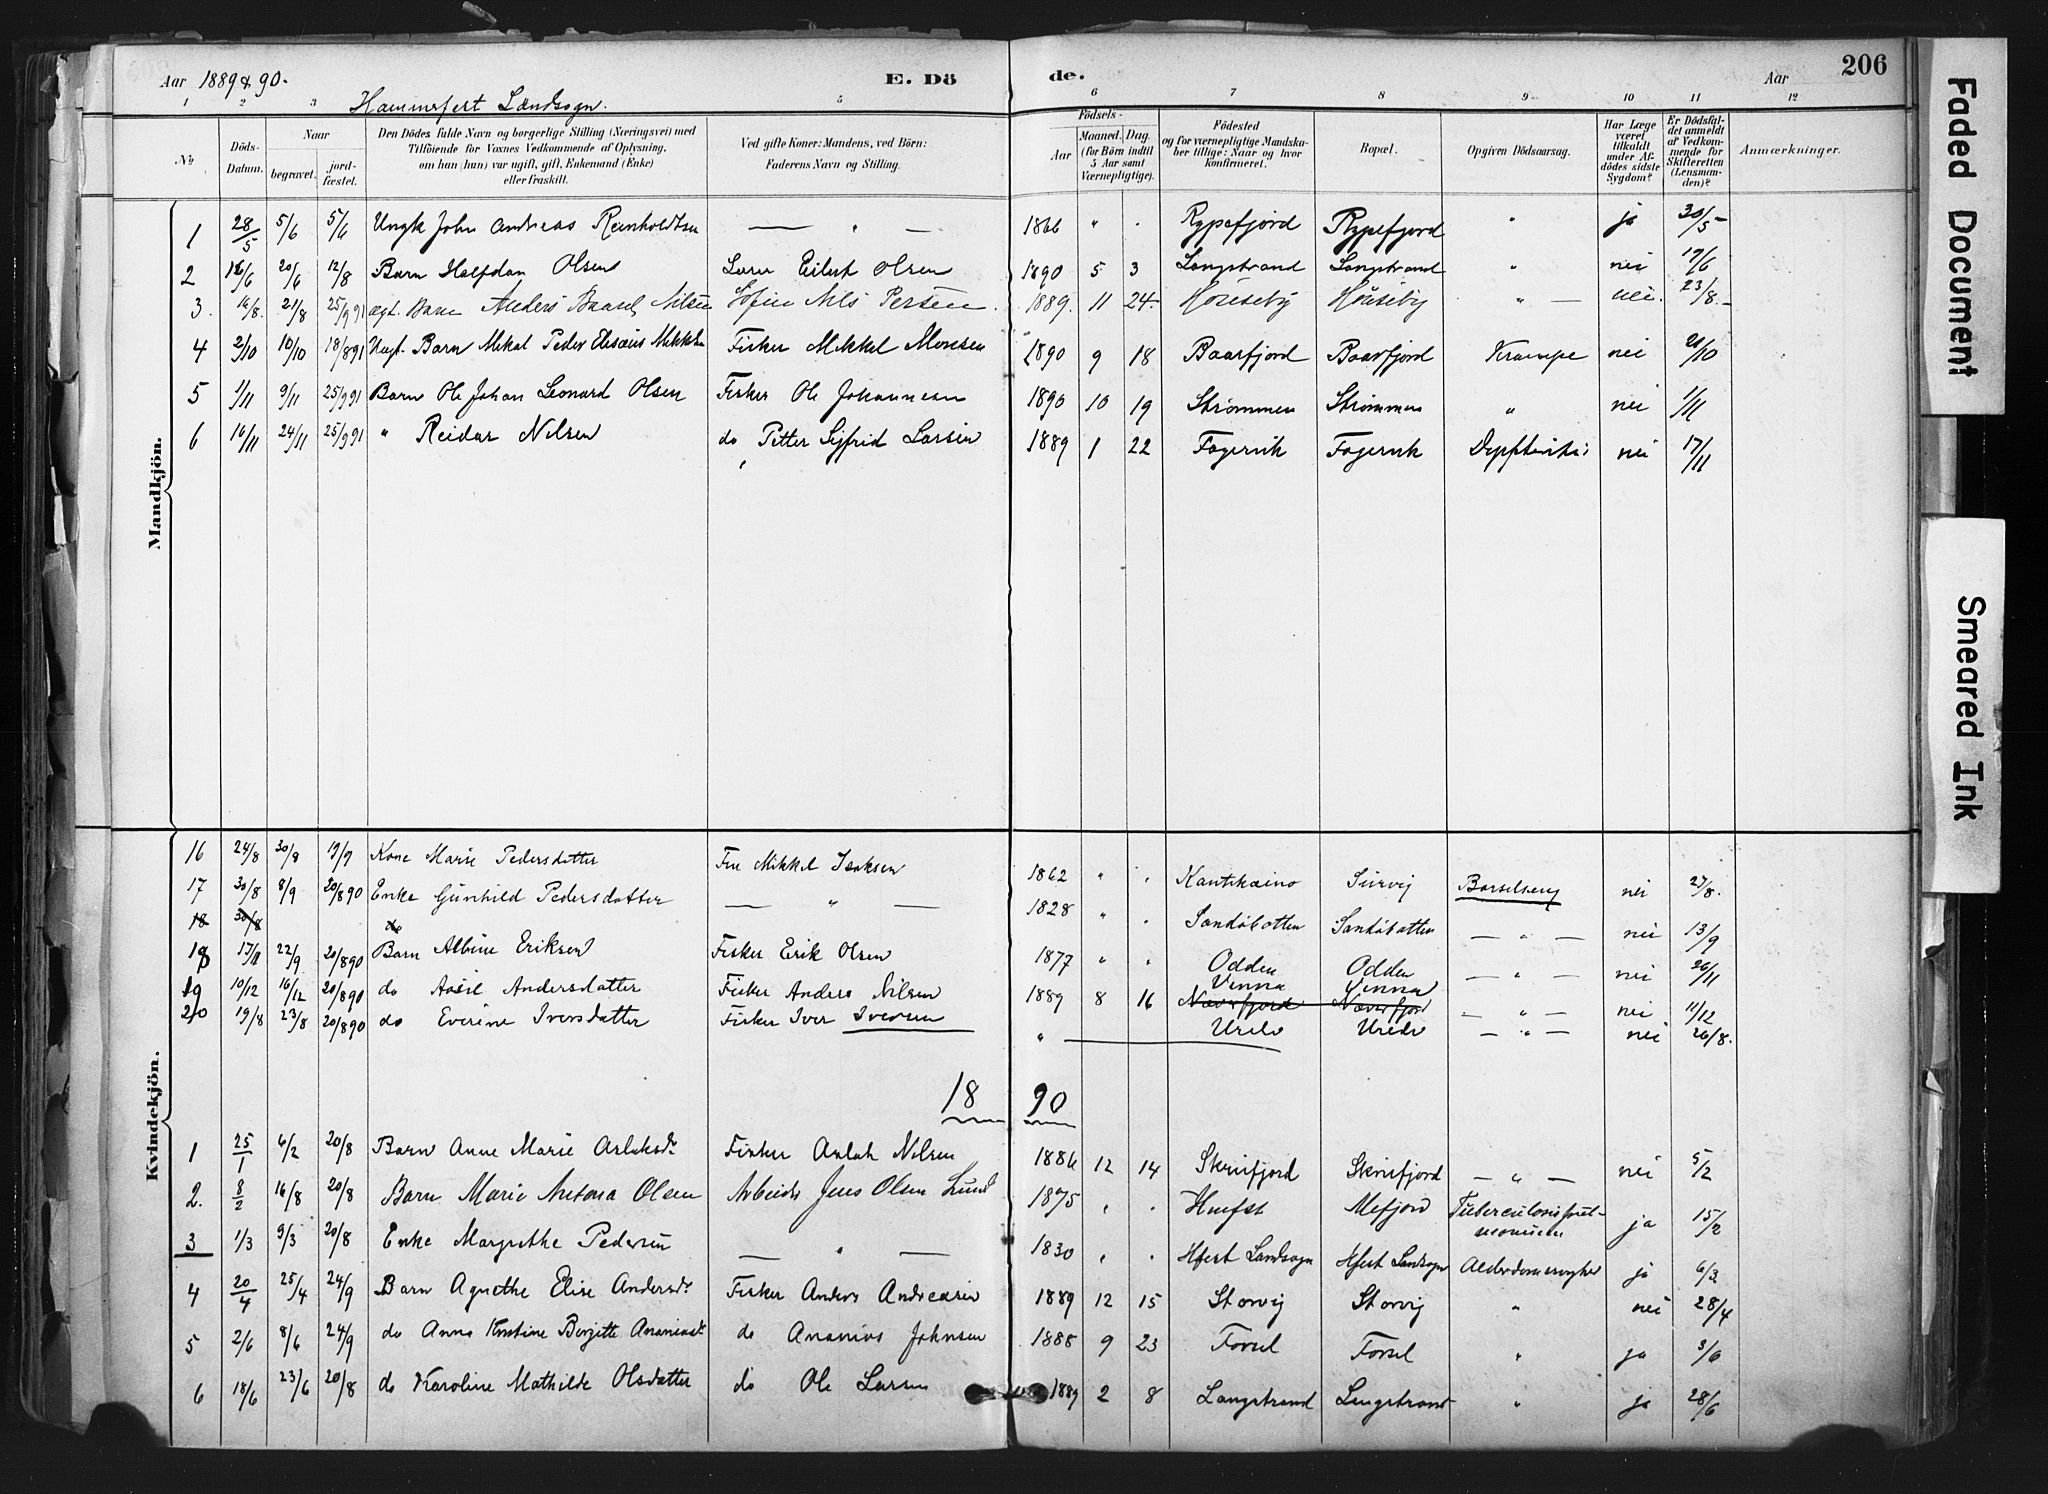 Aar 1889 & 90. E. Dö de. Aar 206
Hammerfest Landsogn.
1 2 3 5 6 7 8 9 10 11 12
No
Döds-Datum.
Naar
begravet.
jord-fæstet.
Den Dödes fulde Navn og borgerlige Stilling (Næringsvei) med
Tilföiende for Voxnes Vedkommende af Oplysning,
om han (hun) var ugift, gift, Enkemand (Enke)
eller fraskilt.
Ved gifte Koner: Mandens, ved Börn:
Faderens Navn og Stilling.
Födsels-
Aar
Maaned. Dag.
(for Börn indtil
5 Aar samt
Værnepligtige).
Födested
og for værnepligtige Mandska-
ber tillige: Naar og hvor
konfirmeret.
Bopæl.
Opgiven Dödsaarsag.
Har Læge
været
tilkaldt
under Af-
dödes sidste
Sygdom?
Er Dödsfal-
det anmeldt
af Vedkom-
mende for
Skifteretten
(Lensman-
den)?
Anmærkninger.
Mandkjön.
1 28/5 5/6 5/6 Ungk John Andreas Reinholdtsen — " — 1866 " . Rypefjord Rypefjord " ja 30/5
2 16/6 20/6 12/8 Barn Halfdan Olsen Lærer Eilert Olsen 1890 5 3 Langstrand Langstrand " nei 17/6
3. 16/8. 21/8 25/9 91 ægt. Barn Anders Nilsen Nils Persen. 1889. 11 24 " — nei. 23/8.
4 2/10 10/10 18/8 91 Uægt. Barn Mikal Peder Elisæus Mikkelsen Fisker Mikkel Monsen 1890 9 18 Baarfjord Baarfjord Krampe nei 21/10
5 1/11 9/11 25/9 91 Barn Ole Johan Leonard Olsen Fisker Ole Johannesen 1890 10 19 Strømmen Strømmen " nei 1/11
6 16/11 24/11 25/9 91 " Reidar Nilsen do Petter Sigfrid Larsen 1889 1 22 Fagervik Fagervik nei 17/11
Kvindekjön.
16 24/8 30/8 19/9 Kone Marie Pedersdatter Mikkel Isaksen 1862 " . Kautokeino Survig Barselseng nei 27/8.
17 30/8 8/9 20/8 90 Enke Gunhild Pedersdatter — " — 1828 " . Sandøbotten Sandøbotten — " — nei 13/9
18 30/8 do
18 17/11 22/9 20/8 90 Barn Albine Eriksen Fisker Erik Olsen 1877 " " Odden Odden — " — nei 26/11
19 10/12 16/12 20/8 90 do Andersdatter Fisker Anders Nilsen 1889 8 16 Vinna Vinna Næverfjord Næverfjord — " — nei 11/12
20 19/8 23/8 20/8 90 do Everine Iversdatter Fisker Iver Iversen " — " — nei 26/8.
18 90
1 25/1 6/2 20/8 Barn Anne Marie Aslaksdr Fisker Aslak Nilsen 1886 12 14 Skrisfjord Skrisfjord — " — nei 5/2
2. 8/2 16/8 20/8 Barn Marie Antona Olsen Arbeider Jens Olsen Lund 1875 . . Hmfst Mefjord Tuberculosis pul-
monum ja 15/2
3 1/3 9/3 20/8 Enke Margrethe Pedersen — " — 1830 . . Hfest Landsogn Hfest Landsogn Alderdomssvaghed ja 6/3
4 20/4 25/4 24/9 Barn Agnethe Elise Andersdr Fisker Anders Andreasen 1889 12 15 Storvig Storvig " nei 28/4
5 2/6 8/6 24/9 do Anna Kristine Birgitte Ananiasdr do Ananias Johnsen 1888 9 23 Forsøl Forsøl " ja 3/6
6 18/6 23/6 20/8 do Karoline Mathilde Olsdatter do Ole Larsen 1889 2 8 Langstrand Langstrand " ja 28/6
Faded Document
Smeared Ink